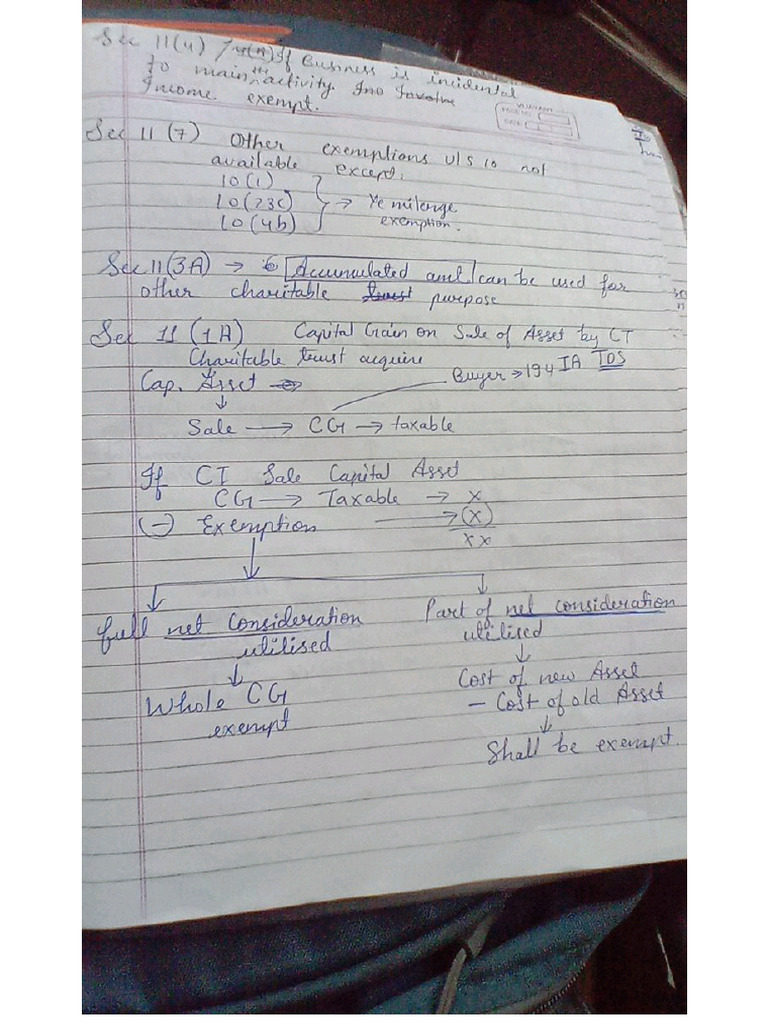 Sec 11(4) / 4(A) If Business is incidental
to main activity the
Income exempt.
Sec 11(7) Other exemptions U/S 10 not
available except.
10(1)
10(23C) → Ye milenge
exemption.
10(46)
Sec 11(3A) → Accumulated amt can be used for
other charitable trust purpose
Sec 11(1A) Capital Gain on Sale of Asset by CT
Charitable trust acquire
Cap. Asset → Buyer → 194 IA TDS
↓
Sale → CG → taxable
If CT Sale Capital Asset
CG → Taxable → x
(-) Exemption → (x)
xx
full net consideration
utilised
↓
Whole CG
exempt
Part of net consideration
utilised
↓
Cost of new Asset
- Cost of old Asset
↓
Shall be exempt.